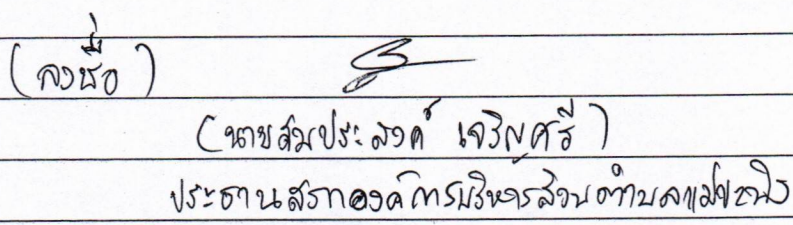 (ลงชื่อ)
(นายสมประสงค์ เจริญศรี)
ประธานสภาองค์การบริหารส่วนตำบลแม่ขะนิง